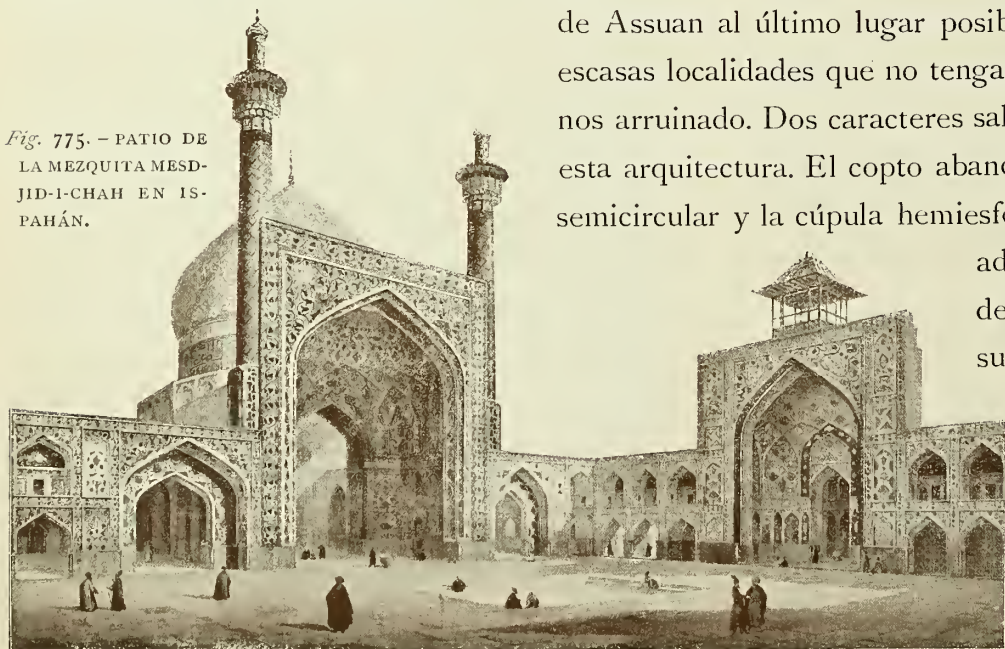 Fig. 775. – PATIO DE
LA MEZQUITA MESD-
JID-I-CHAH EN IS-
PAHÁN.
de Assuan al último lugar posib
escasas localidades que no tenga
nos arruinado. Dos caracteres sal
esta arquitectura. El copto aban
semicircular y la cúpula hemiesf
ad
de
su